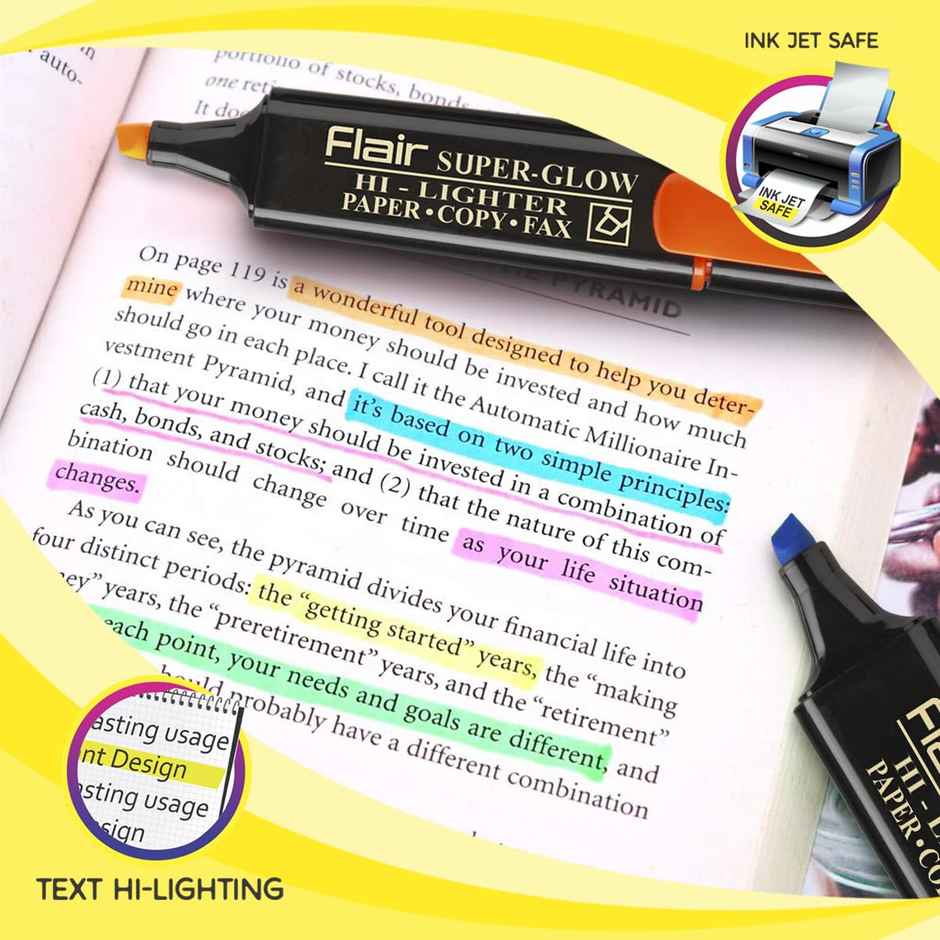 INK JET SAFE
INK JET
SAFE
auto-
portfolio of stocks, bonds
one
It
Flair SUPER-GLOW
HI - LIGHTER
PAPER • COPY • FAX
PYRAMID
On page 119 is a wonderful tool designed to help you deter-
mine where your money should be invested and how much
should go in each place. I call it the Automatic Millionaire In-
vestment Pyramid, and it's based on two simple principles:
(1) that your money should be invested in a combination of
cash, bonds, and stocks; and (2) that the nature of this com-
bination should change over time as your life situation
changes.
As you can see, the pyramid divides your financial life into
four distinct periods: the "getting started" years, the "making
years, the "preretirement" years, and the "retirement"
each point, your needs and goals are different, and
should probably have a different combination
HI
PAPER • CO
asting usage
nt Design
asting usage
sign
TEXT HI-LIGHTING